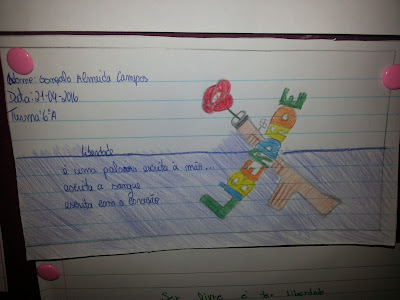 Nome: Gonçalo Almeida Campos
Data: 21-04-2016
Turma: 6ºA
Liberdade
é uma palavra escrita à mão...
escrita a sangue
escrita com o coração
LIBERDADE
Ser livre é ter liberdade